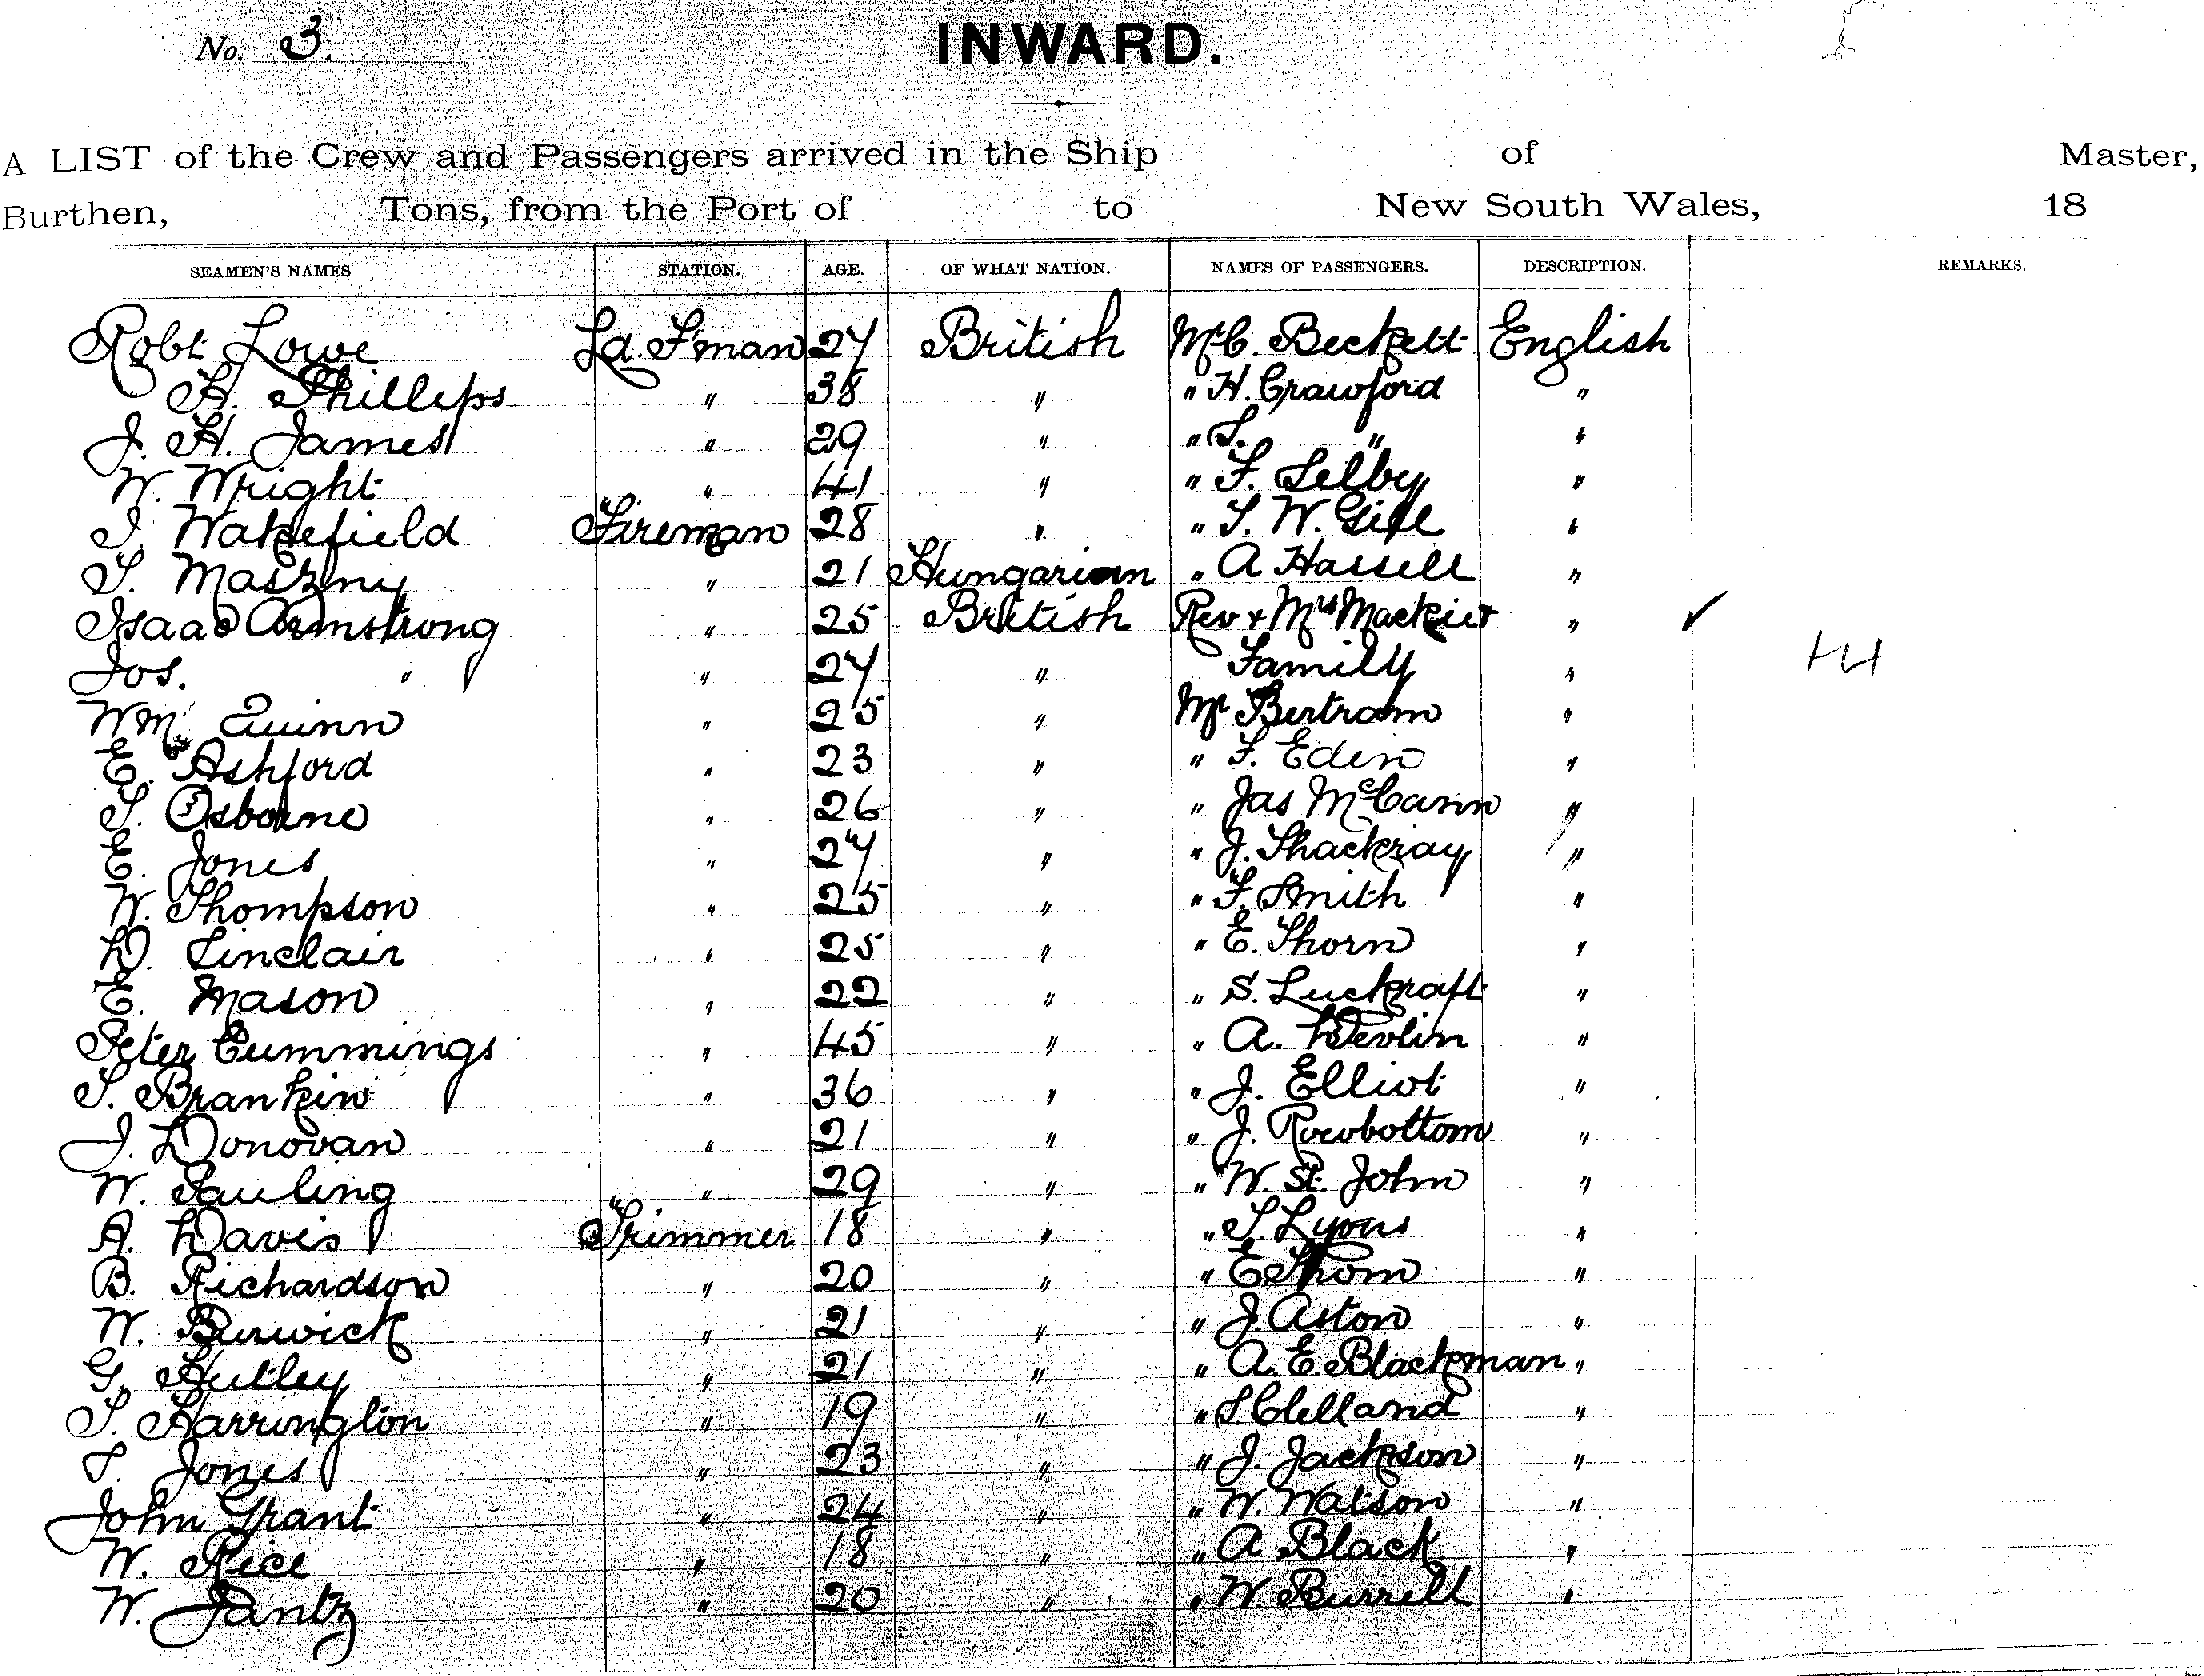 No. 3.
INWARD.
A LIST of the Crew and Passengers arrived in the Ship of Master,
Burthen, Tons, from the Port of to New South Wales, 18
SEAMEN'S NAMES STATION. AGE. OF WHAT NATION. NAMES OF PASSENGERS. DESCRIPTION. REMARKS.
Robt Lowe Ld. Fman 27 British Mr C. Beckett English
H. Phillips " 38 " " H. Crawford "
J. H. James " 29 " " S. " "
W. Wright " 41 " " F. Selby "
J. Wakefield Fireman 28 " " T. W. "
S. Maszny " 21 Hungarian " A Hassell "
Isaac Armstrong " 25 British Rev + Mrs Mackie + "
Jos. " " 27 " Family "
Wm Quinn " 25 " Mr Bertram "
E. Ashford " 23 " " F. Eden "
T. Osborne " 26 " " Jas McCann "
E. Jones " 27 " " J. Thackray "
W. Thompson " 25 " " F. Smith "
D. Sinclair " 25 " " E. Thorn "
E. Mason " 22 " " S. Luckraft "
Peter Cummings " 45 " " A. Devlin "
T. Brankin " 36 " " J. Elliot "
J. Donovan " 21 " " J. Rowbottom "
W. Pauling " 29 " " W. St. John "
A. Davis Trimmer 18 " " T. Lyons "
B. Richardson " 20 " " E Thom "
W. Burwick " 21 " " J. Aston "
G. Hutley " 21 " " A. E. Blackman "
T. Harrington " 19 " " S Clelland "
T. Jones " 23 " " J. Jackson "
John Grant " 24 " " W. Watson "
W. Rice " 18 " " A. Black "
W. Jantz " 20 " " W Burrell "